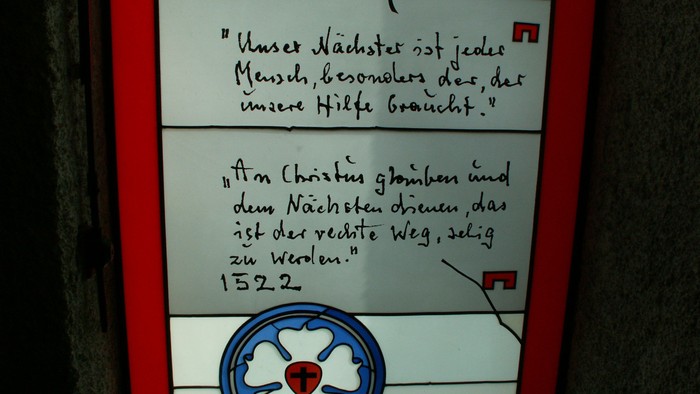 "Unser Nächster ist jeder
Mensch, besonders der, der
unsere Hilfe braucht."
„An Christus glauben und
dem Nächsten dienen, das
ist der rechte Weg, selig
zu werden."
1522